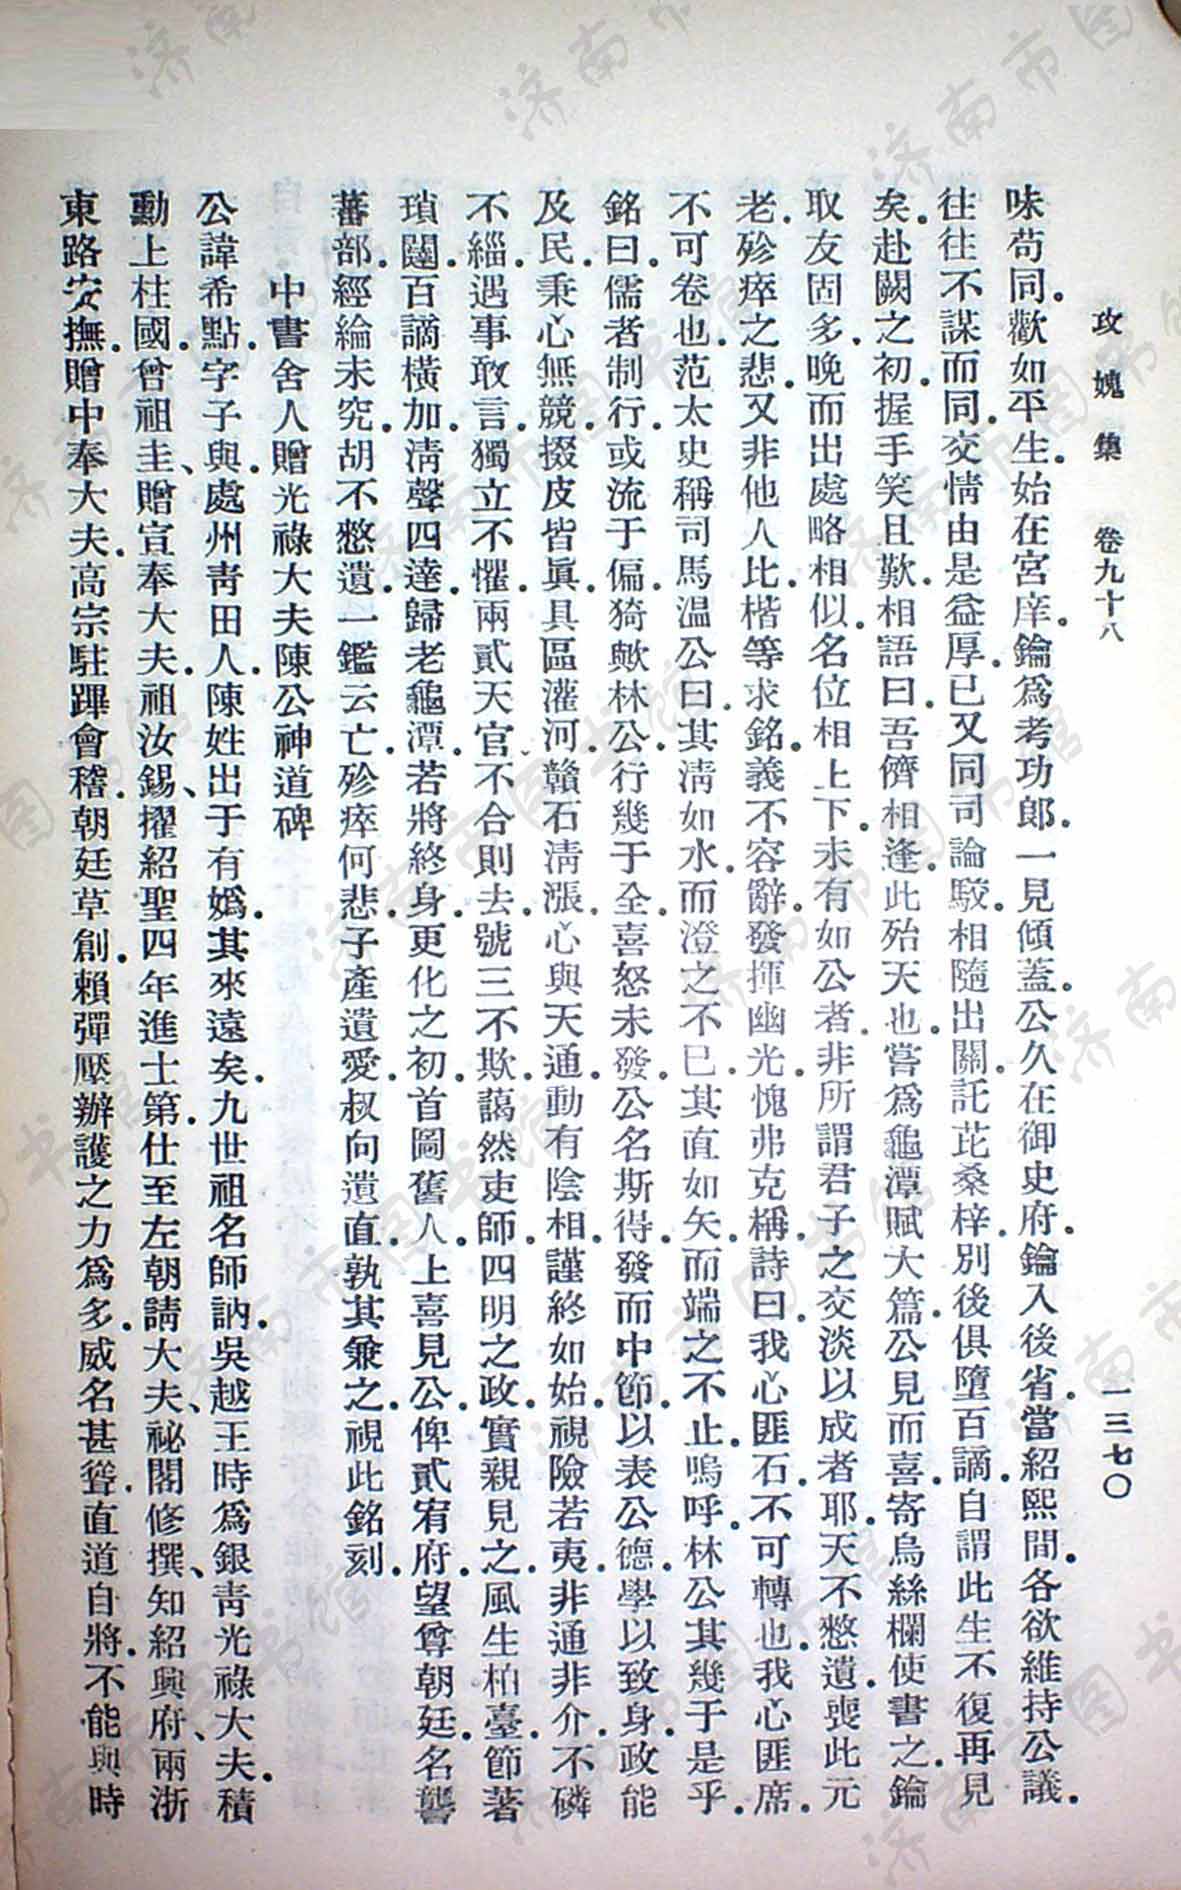 攻媿集 卷九十八 一三七〇
味苟同。歡如平生。始在宮庠。鑰爲考功郎。一見傾蓋。公久在御史府。鑰入後省。當紹熙間。各欲維持公議。
往往不謀而同。交情由是益厚。已又同司論駁。相隨出關。託芘桑梓。別後俱墮百謫。自謂此生不復再見
矣。赴闕之初。握手笑且歎。相語曰。吾儕相逢。此殆天也。嘗爲龜潭賦大篇。公見而喜。寄烏絲欄使書之。鑰
取友固多。晚而出處略相似。名位相上下。未有如公者。非所謂君子之交淡以成者耶。天不憗遺。喪此元
老。殄瘁之悲。又非他人比。楷等求銘。義不容辭。發揮幽光。愧弗克稱。詩曰。我心匪石。不可轉也。我心匪席。
不可卷也。范太史稱司馬温公曰。其淸如水。而澄之不已。其直如矢。而端之不止。嗚呼。林公其幾于是乎。
銘曰。儒者制行。或流于偏。猗歟林公。行幾于全。喜怒未發。公名斯得。發而中節。以表公德。學以致身。政能
及民。秉心無競。掇皮皆眞。具區灌河。贛石淸漲。心與天通。動有陰相。謹終如始。視險若夷。非通非介。不磷
不緇。遇事敢言。獨立不懼。兩貳天官。不合則去。號三不欺。藹然吏師。四明之政。實親見之。風生柏臺。節著
瑣闥。百謫橫加。淸聲四達。歸老龜潭。若將終身。更化之初。首圖舊人。上喜見公。俾貳宥府。望尊朝廷。名讋
蕃部。經綸未究。胡不憗遺。一鑑云亡。殄瘁何悲。子產遺愛。叔向遺直。孰其兼之。視此銘刻。
中書舍人贈光祿大夫陳公神道碑
公諱希點。字子與。處州靑田人。陳姓出于有嬀。其來遠矣。九世祖名師訥。吳越王時爲銀靑光祿大夫。積
勳上柱國。曾祖圭、贈宣奉大夫。祖汝錫、擢紹聖四年進士第。仕至左朝請大夫、祕閣修撰、知紹興府、兩浙
東路安撫。贈中奉大夫。高宗駐蹕會稽。朝廷草創。賴彈壓辦護之力爲多。威名甚聳。直道自將。不能與時